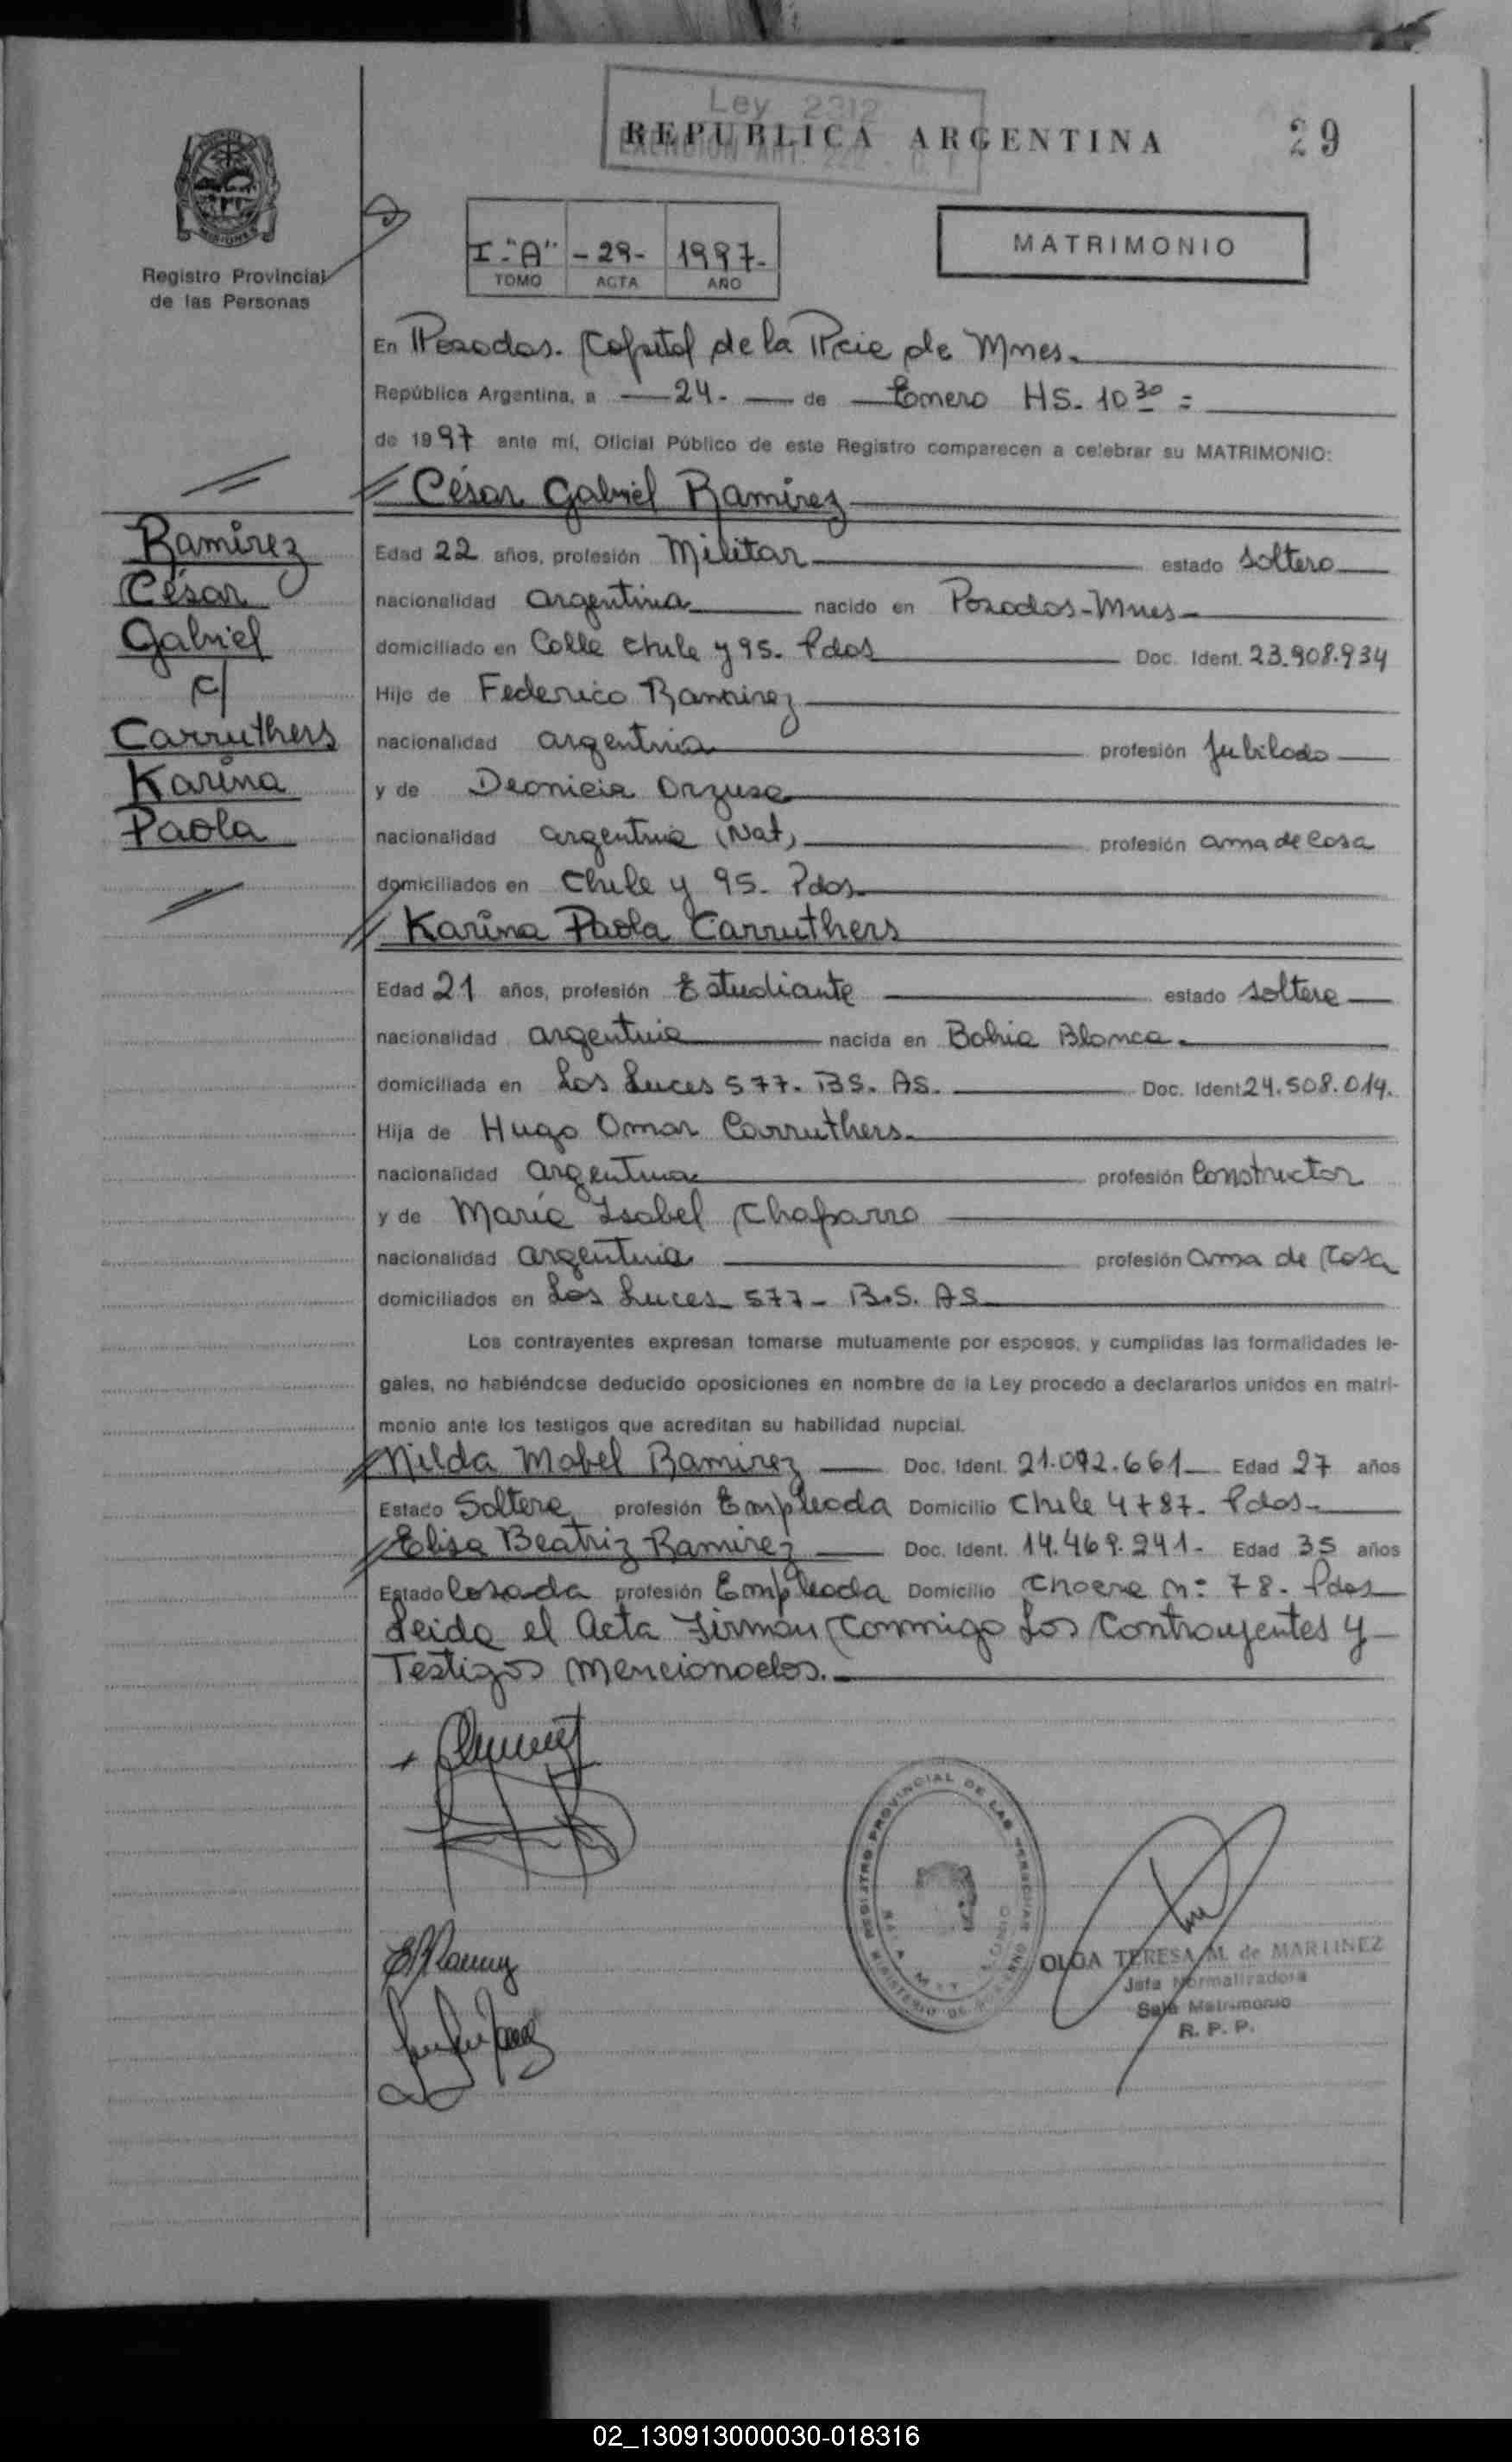 Ley 2212
REPUBLICA ARGENTINA
29
MISIONES
Registro Provincial
de las Personas
I-"A" - 29- 1997-
TOMO ACTA AÑO
MATRIMONIO
En Posadas. Capital de la Pcia de Mnes.
República Argentina, a 24. de Enero HS. 10 30 =
de 1997 ante mí, Oficial Público de este Registro comparecen a celebrar su MATRIMONIO:
César Gabriel Ramírez
Ramírez
César
Gabriel
c/
Carruthers
Karina
Paola
Edad 22 años, profesión Militar estado soltero
nacionalidad argentina nacido en Posadas-Mnes-
domiciliado en Calle Chile y 95. Pdas Doc. Ident. 23.908.934
Hijo de Federico Ramirez
nacionalidad argentina profesión Jubilado
y de Deonicia Orzusa
nacionalidad argentina (Nat) profesión ama de casa
domiciliados en Chile y 95. Pdas.
Karina Paola Carruthers
Edad 21 años, profesión Estudiante estado soltera
nacionalidad argentina nacida en Bahia Blanca.
domiciliada en Las Luces 577. BS. AS. Doc. Ident. 24.508.014.
Hija de Hugo Omar Carruthers.
nacionalidad argentina profesión Constructor
y de María Isabel Chaparro
nacionalidad argentina profesión ama de Casa
domiciliados en Las Luces 577- B.S. AS
Los contrayentes expresan tomarse mutuamente por esposos, y cumplidas las formalidades le-
gales, no habiéndose deducido oposiciones en nombre de la Ley procedo a declararlos unidos en matri-
monio ante los testigos que acreditan su habilidad nupcial.
Nilda Mabel Ramirez Doc. Ident. 21.092.661 Edad 27 años
Estado Soltera profesión Empleada Domicilio Chile 4787. Pdas-
Elisa Beatriz Ramirez Doc. Ident. 14.469.241- Edad 35 años
Estado Casada profesión Empleada Domicilio nº 78. Pdas
Leida el Acta Firman Conmigo Los Contrayentes y
Testigos mencionados.-
REGISTRO PROVINCIAL DE LAS PERSONAS
MINISTERIO DE GOBIERNO
OLGA TERESA M. de MARTINEZ
Jefa Normalizadora
Sala Matrimonio
R. P. P.
02_130913000030-018316